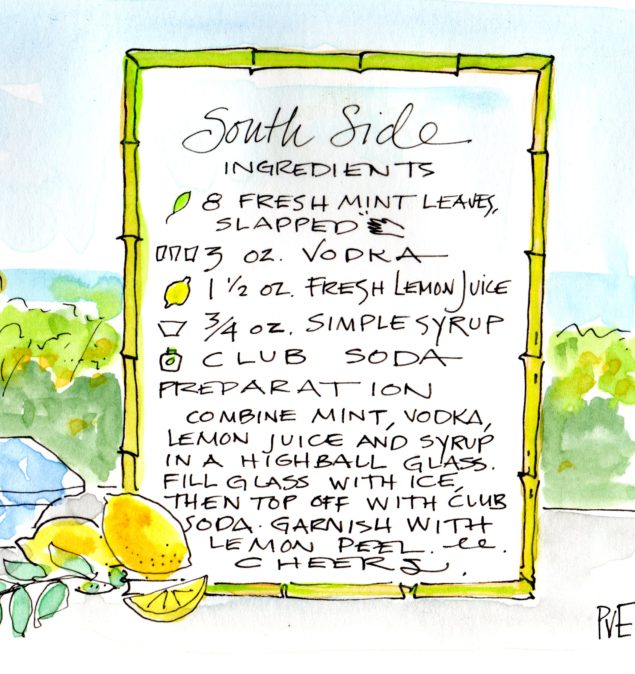 South Side
INGREDIENTS
8 FRESH MINT LEAVES,
SLAPPED
3 OZ. VODKA
1 1/2 OZ. FRESH LEMON JUICE
3/4 OZ. SIMPLE SYRUP
CLUB SODA
PREPARATION
COMBINE MINT, VODKA,
LEMON JUICE AND SYRUP
IN A HIGHBALL GLASS.
FILL GLASS WITH ICE,
THEN TOP OFF WITH CLUB
SODA. GARNISH WITH
LEMON PEEL.
CHEERS.
PVE